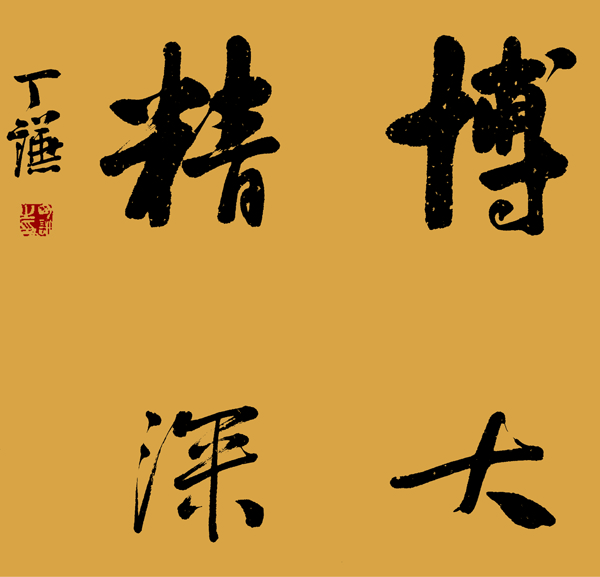 博大
精深
丁謙